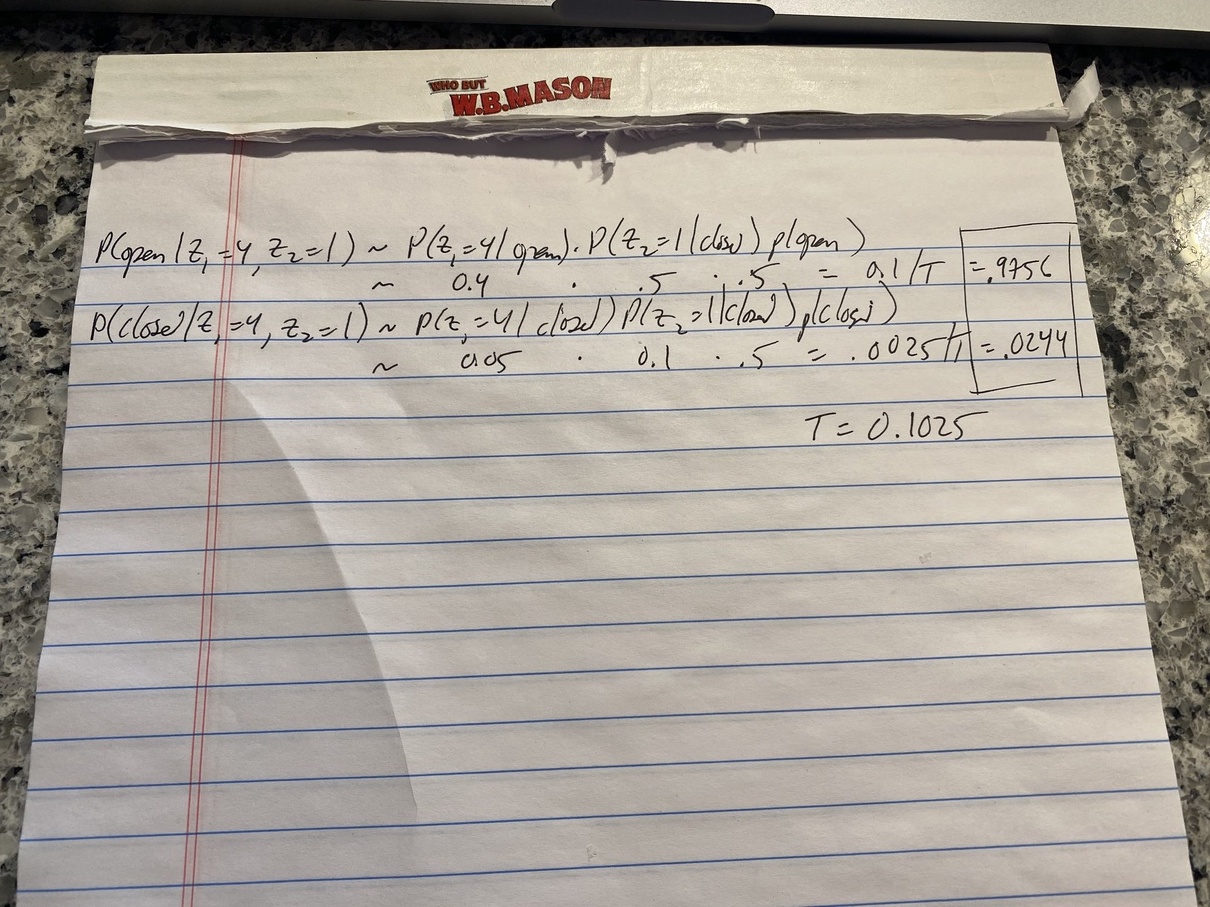 WHO BUT
W.B.MASON
P(open|z₁=4, z₂=1) ~ P(z₁=4|open)·P(z₂=1|close) p(open)
~ 0.4 · .5 · .5 = 0.1/T =.9756
P(close|z₁=4, z₂=1) ~ P(z₁=4|close) P(z₂=1|close) p(close)
~ 0.05 · 0.1 · .5 = .0025/T =.0244
T = 0.1025